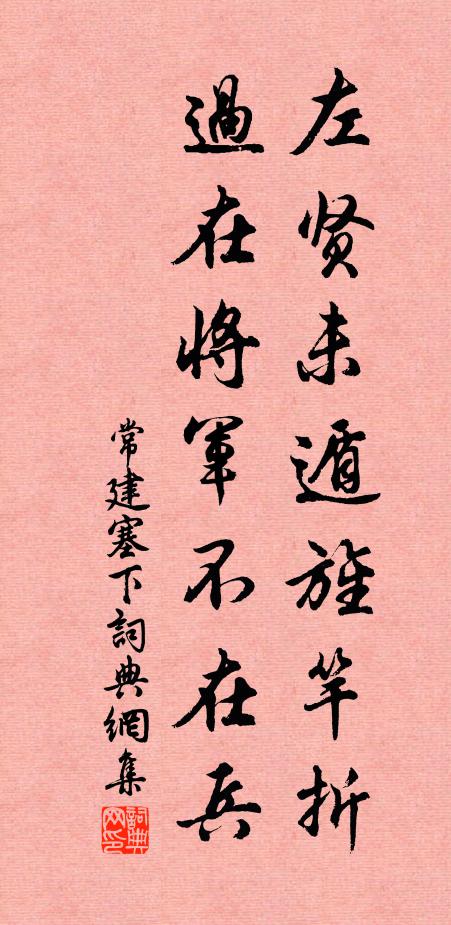 左贤未遁旌竿折
過在將軍不在兵
常建塞下詞典網集
詞典网印